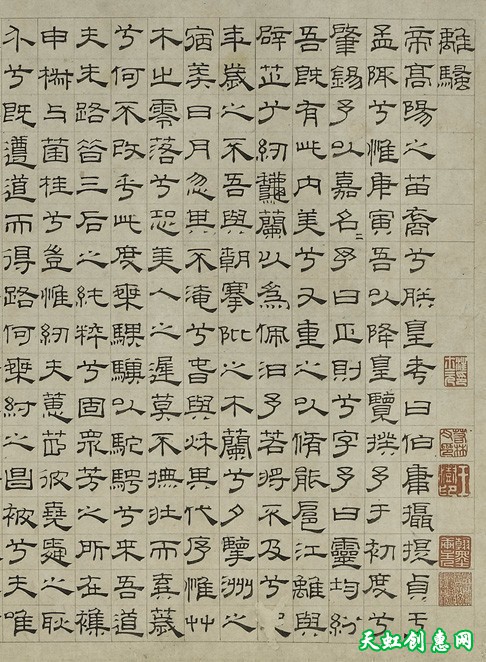 離騷
帝高陽之苗裔兮朕皇考曰伯庸攝提貞于
孟陬兮惟庚寅吾以降皇覽揆予于初度兮
肇錫予以嘉名〻予曰正則兮字予曰靈均紛
吾既有此內美兮又重之以脩能扈江離與
辟芷兮紉龝蘭以為佩汩予若將不及兮
年歲之不吾與朝搴阰之木蘭兮夕擥洲之
宿莽日月忽其不淹兮旾與秌其代序惟艸
木之零落兮恐美人之遲莫不撫壯而棄薉
兮何不改乎此度椉騏驥以駝騁兮來吾道
夫先路昝三后之純粹兮固眾芳之所在襍
申椒与菌桂兮豈惟紉夫蕙茝彼堯舜之耿
介兮既遵道而得路何桀紂之昌被兮夫唯
天虹创意网